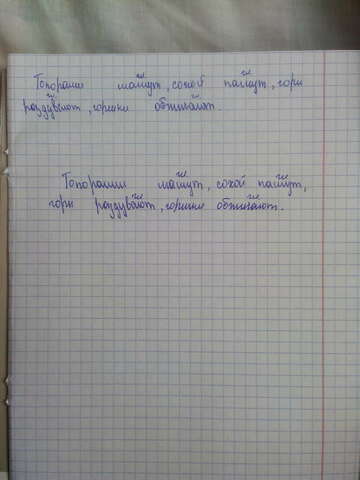 Топорами машут, сохой пашут, горн
раздувают, горшки обжигают.
Топорами машут, сохой пашут,
горн раздувают, горшки обжигают.